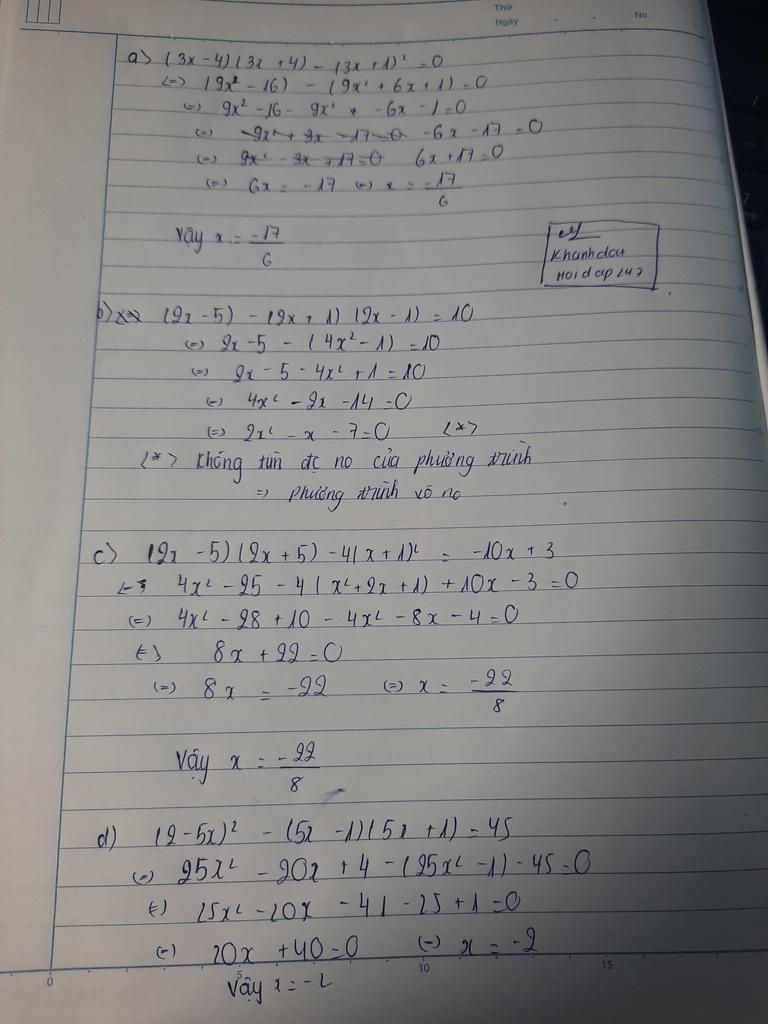 Thứ
Ngày
No.
a> (3x-4)(3x+4) - (3x+1)² = 0
(=) (9x² - 16) - (9x² + 6x + 1) = 0
(=) 9x² - 16 - 9x² - 6x - 1 = 0
(=) -6x - 17 = 0
(=) 6x + 17 = 0
(=) 6x = -17 (=) x = -17/6
Vậy x = -17/6
Khanhdat
Hoidap247
b) (2x - 5) - (2x + 1) (2x - 1) = 10
(=) 2x - 5 - (4x² - 1) = 10
(=) 2x - 5 - 4x² + 1 = 10
(=) 4x² - 2x - 14 = 0
(=) 2x² - x - 7 = 0 <*>
<*> Không tìm đc no của phương trình
=> phương trình vô no
c> (2x - 5)(2x + 5) - 4(x + 1)² = -10x + 3
(=) 4x² - 25 - 4(x² + 2x + 1) + 10x - 3 = 0
(=) 4x² - 28 + 10 - 4x² - 8x - 4 = 0
(=) 8x + 22 = 0
(=) 8x = -22 (=) x = -22/8
Vậy x = -22/8
d) (2 - 5x)² - (5x - 1)(5x + 1) = 45
(=) 25x² - 20x + 4 - (25x² - 1) - 45 = 0
(=) 25x² - 20x - 41 - 25 + 1 = 0
(=) 20x + 40 = 0 (=) x = -2
Vậy x = -2
0 5 10 15